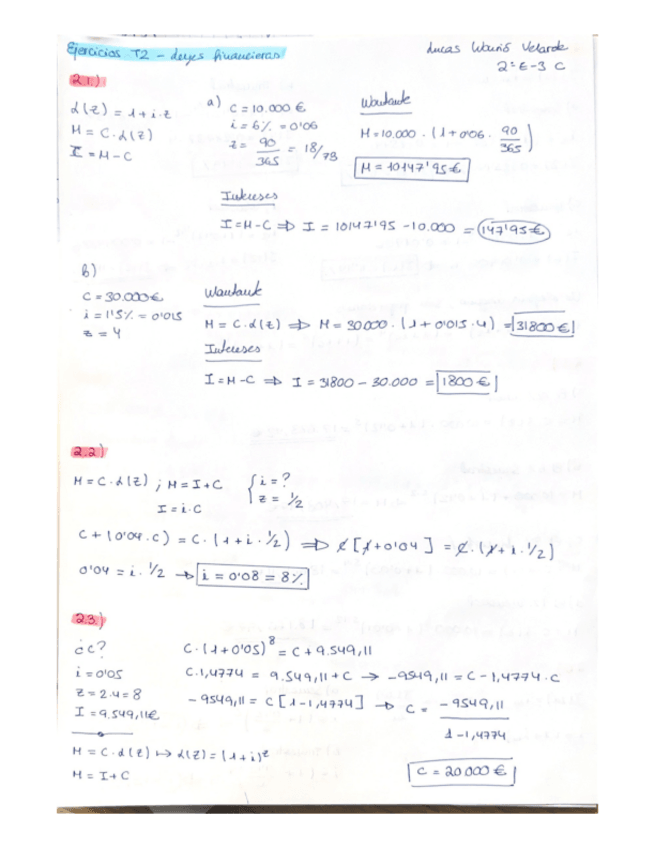 Ejercicios T2 - Leyes financieras
Lucas Velarde
2º E-3 C
2.1.)
L(z) = 1+i·z
M = C·L(z)
I = M-C
a) C = 10.000 €
i = 6% = 0'06
z = 90/365 = 18/73
Montante
M = 10.000 · (1+0'06 · 90/365)
M = 10147'95 €
Intereses
I = M-C ⇒ I = 10147'95 - 10.000 = 147'95 €
b)
C = 30.000 €
i = 1'5% = 0'015
z = 4
Montante
M = C·L(z) ⇒ M = 30.000 · (1+0'015·4) = 31800 €
Intereses
I = M-C ⇒ I = 31800 - 30.000 = 1800 €
2.2)
M = C·L(z) ; M = I+C
I = i·C
i = ?
z = 1/2
C + (0'04·C) = C·(1+i·1/2) ⇒ C[1+0'04] = C·(1+i·1/2)
0'04 = i·1/2 → i = 0'08 = 8%
2.3.)
¿C?
i = 0'05
z = 2·4 = 8
I = 9.549,11€
M = C·L(z) ↦ L(z) = (1+i)^z
M = I+C
C·(1+0'05)^8 = C+9.549,11
C·1,4774 = 9.549,11+C → -9549,11 = C-1,4774·C
-9549,11 = C[1-1,4774] → C = -9549,11 / 1-1,4774
C = 20000 €